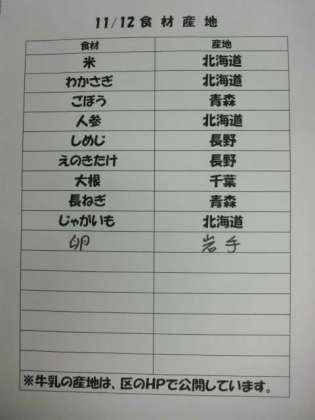 11/12食材産地
食材 産地
米 北海道
わかさぎ 北海道
ごぼう 青森
人参 北海道
しめじ 長野
えのきたけ 長野
大根 千葉
長ねぎ 青森
じゃがいも 北海道
卵 岩手
※牛乳の産地は、区のHPで公開しています。